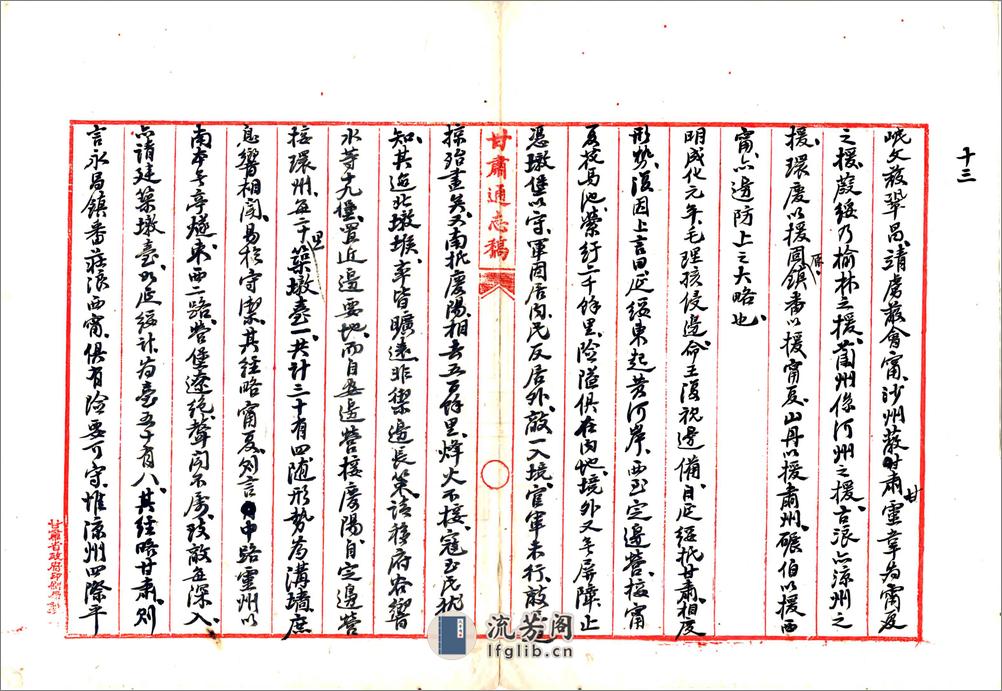 十三
岷文援鞏昌、靖虜援會寧、沙州援甘肅、靈韋為甯夏
之援、葭綏乃榆林之援、蘭州係河州之援、古浪亦涼州之
援、環慶以援固原、鎮番以援甯夏、山丹以援肅州、碾伯以援西
甯、亦邊防上之大略也、
明成化元年、毛理孩侵邊、命王復視邊備、自延綏抵甘肅、相度
形勢、復因上言曰、延綏東起黃河岸、西至定邊營、接甯
夏花馬池、縈紆二千餘里、險隘俱在內地、境外又無屏障、止
憑墩堡以守、軍因居內、民反居外、敵一入境、官軍未行、敵
甘肅通志稿
掠殆盡矣、又南抵慶陽、相去五百餘里、烽火不接、寇至民犹
知、其迤北墩堠、率皆曠遠、非禦邊長策、請移府谷響
水等十九堡、置近邊要地、而自安邊營接慶陽、自定邊營
接環州、每二十里築墩臺一、共計三十有四、隨形勢為溝墻、庶
息響相聞、易於守禦、其經略甯夏、則言中路靈州以
南、本無亭燧、東西二路、營堡遼絕、聲聞不屬、致敵每深入、
亦請建築墩臺、如延綏、計為臺五十有八、其經略甘肅、則
言永昌鎮番莊浪西甯、俱有險要可守、惟涼州四際平
甘肅省政府印刷局
流芳阁
lfglib.cn